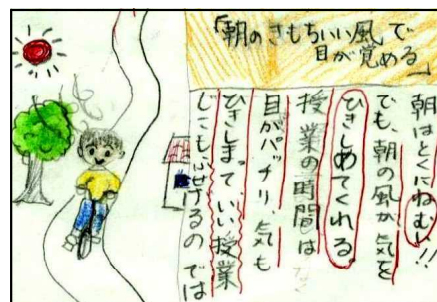 「朝のきもちいい風」で
目が覚める」
朝はとくにねむい!!
でも、朝の風が気を
ひきしめてくれる。
授業の時間は
目がパッチリ、気も
ひきしまって、いい授業
にもではるのでは